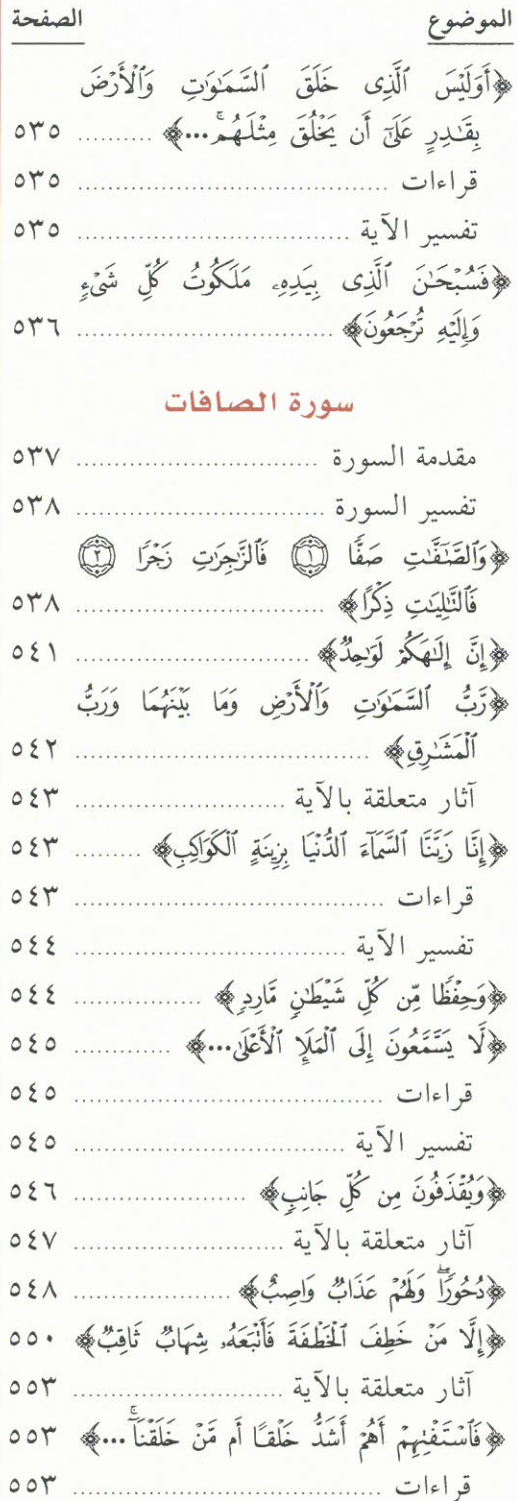 الموضوع الصفحة
﴿أَوَلَيْسَ ٱلَّذِى خَلَقَ ٱلسَّمَٰوَٰتِ وَٱلْأَرْضَ
بِقَٰدِرٍ عَلَىٰٓ أَن يَخْلُقَ مِثْلَهُمۚ...﴾ .......... ٥٣٥
قراءات .......... ٥٣٥
تفسير الآية .......... ٥٣٥
﴿فَسُبْحَٰنَ ٱلَّذِى بِيَدِهِۦ مَلَكُوتُ كُلِّ شَىْءٍ
وَإِلَيْهِ تُرْجَعُونَ﴾ .......... ٥٣٦
سورة الصافات
مقدمة السورة .......... ٥٣٧
تفسير السورة .......... ٥٣٨
﴿وَٱلصَّٰٓفَّٰتِ صَفًّا ۝١ فَٱلزَّٰجِرَٰتِ زَجْرًا ۝٢
فَٱلتَّٰلِيَٰتِ ذِكْرًا﴾ .......... ٥٣٨
﴿إِنَّ إِلَٰهَكُمْ لَوَٰحِدٌ﴾ .......... ٥٤١
﴿رَّبُّ ٱلسَّمَٰوَٰتِ وَٱلْأَرْضِ وَمَا بَيْنَهُمَا وَرَبُّ
ٱلْمَشَٰرِقِ﴾ .......... ٥٤٢
آثار متعلقة بالآية .......... ٥٤٣
﴿إِنَّا زَيَّنَّا ٱلسَّمَآءَ ٱلدُّنْيَا بِزِينَةٍ ٱلْكَوَاكِبِ﴾ .......... ٥٤٣
قراءات .......... ٥٤٣
تفسير الآية .......... ٥٤٤
﴿وَحِفْظًا مِّن كُلِّ شَيْطَٰنٍ مَّارِدٍ﴾ .......... ٥٤٤
﴿لَّا يَسَّمَّعُونَ إِلَى ٱلْمَلَإِ ٱلْأَعْلَىٰ...﴾ .......... ٥٤٥
قراءات .......... ٥٤٥
تفسير الآية .......... ٥٤٥
﴿وَيُقْذَفُونَ مِن كُلِّ جَانِبٍ﴾ .......... ٥٤٦
آثار متعلقة بالآية .......... ٥٤٧
﴿دُحُورًاۖ وَلَهُمْ عَذَابٌ وَاصِبٌ﴾ .......... ٥٤٨
﴿إِلَّا مَنْ خَطِفَ ٱلْخَطْفَةَ فَأَتْبَعَهُۥ شِهَابٌ ثَاقِبٌ﴾ ٥٥٠
آثار متعلقة بالآية .......... ٥٥٣
﴿فَٱسْتَفْتِهِمْ أَهُمْ أَشَدُّ خَلْقًا أَم مَّنْ خَلَقْنَآۚ...﴾ ٥٥٣
قراءات .......... ٥٥٣